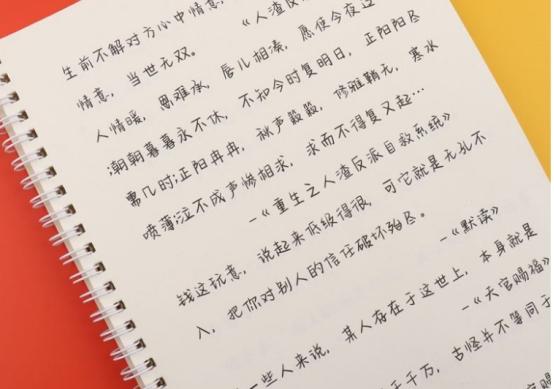 生前不解对方心中情意,
情意,当世无双。 《人渣反
人情暖,恩难承,唇儿相凑,愿便今夜这
;朝朝暮暮永不休,不知今时复明日,正阳阳尽
需几时;正阳冉冉,秋声毅毅,修雅鞘无,寒水
喷薄;泣不成声惨相求,求而不得复又起…
—《重生之人渣反派自救系统》
钱这玩意,说起来低级得很,可它就是无孔不
入,把你对别人的信任破坏殆尽。
—《默读》
一些人来说,某人存在于这世上,本身就是
—《天官赐福》
千千万,古怪并不等同于